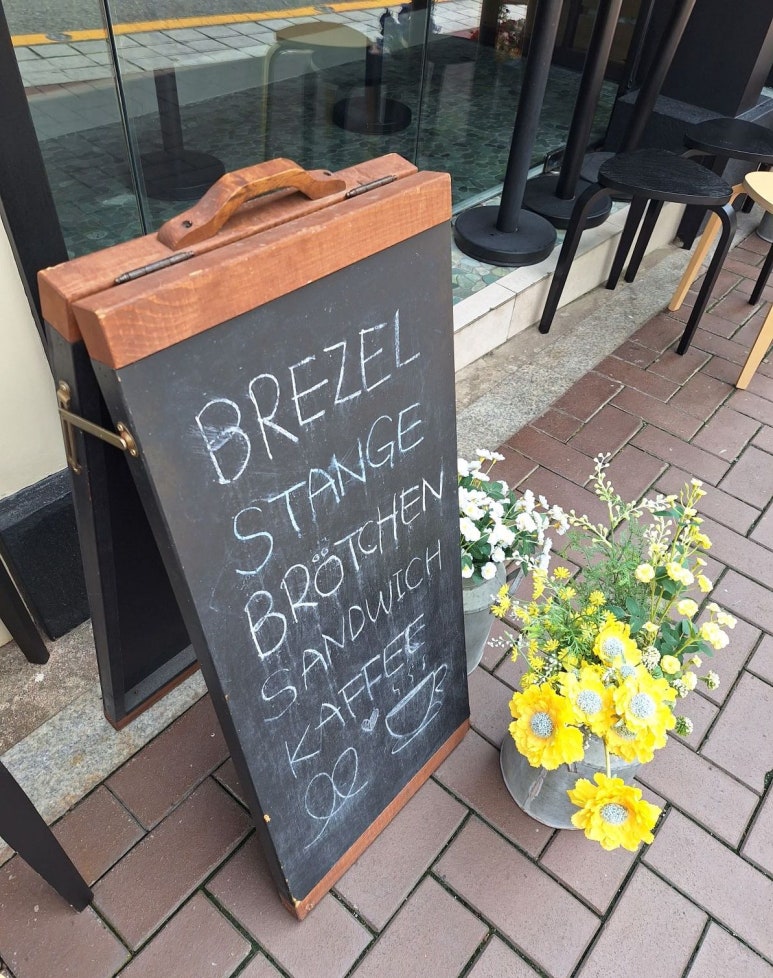 BREZEL
STANGE
BRÖTCHEN
SANDWICH
KAFFEE